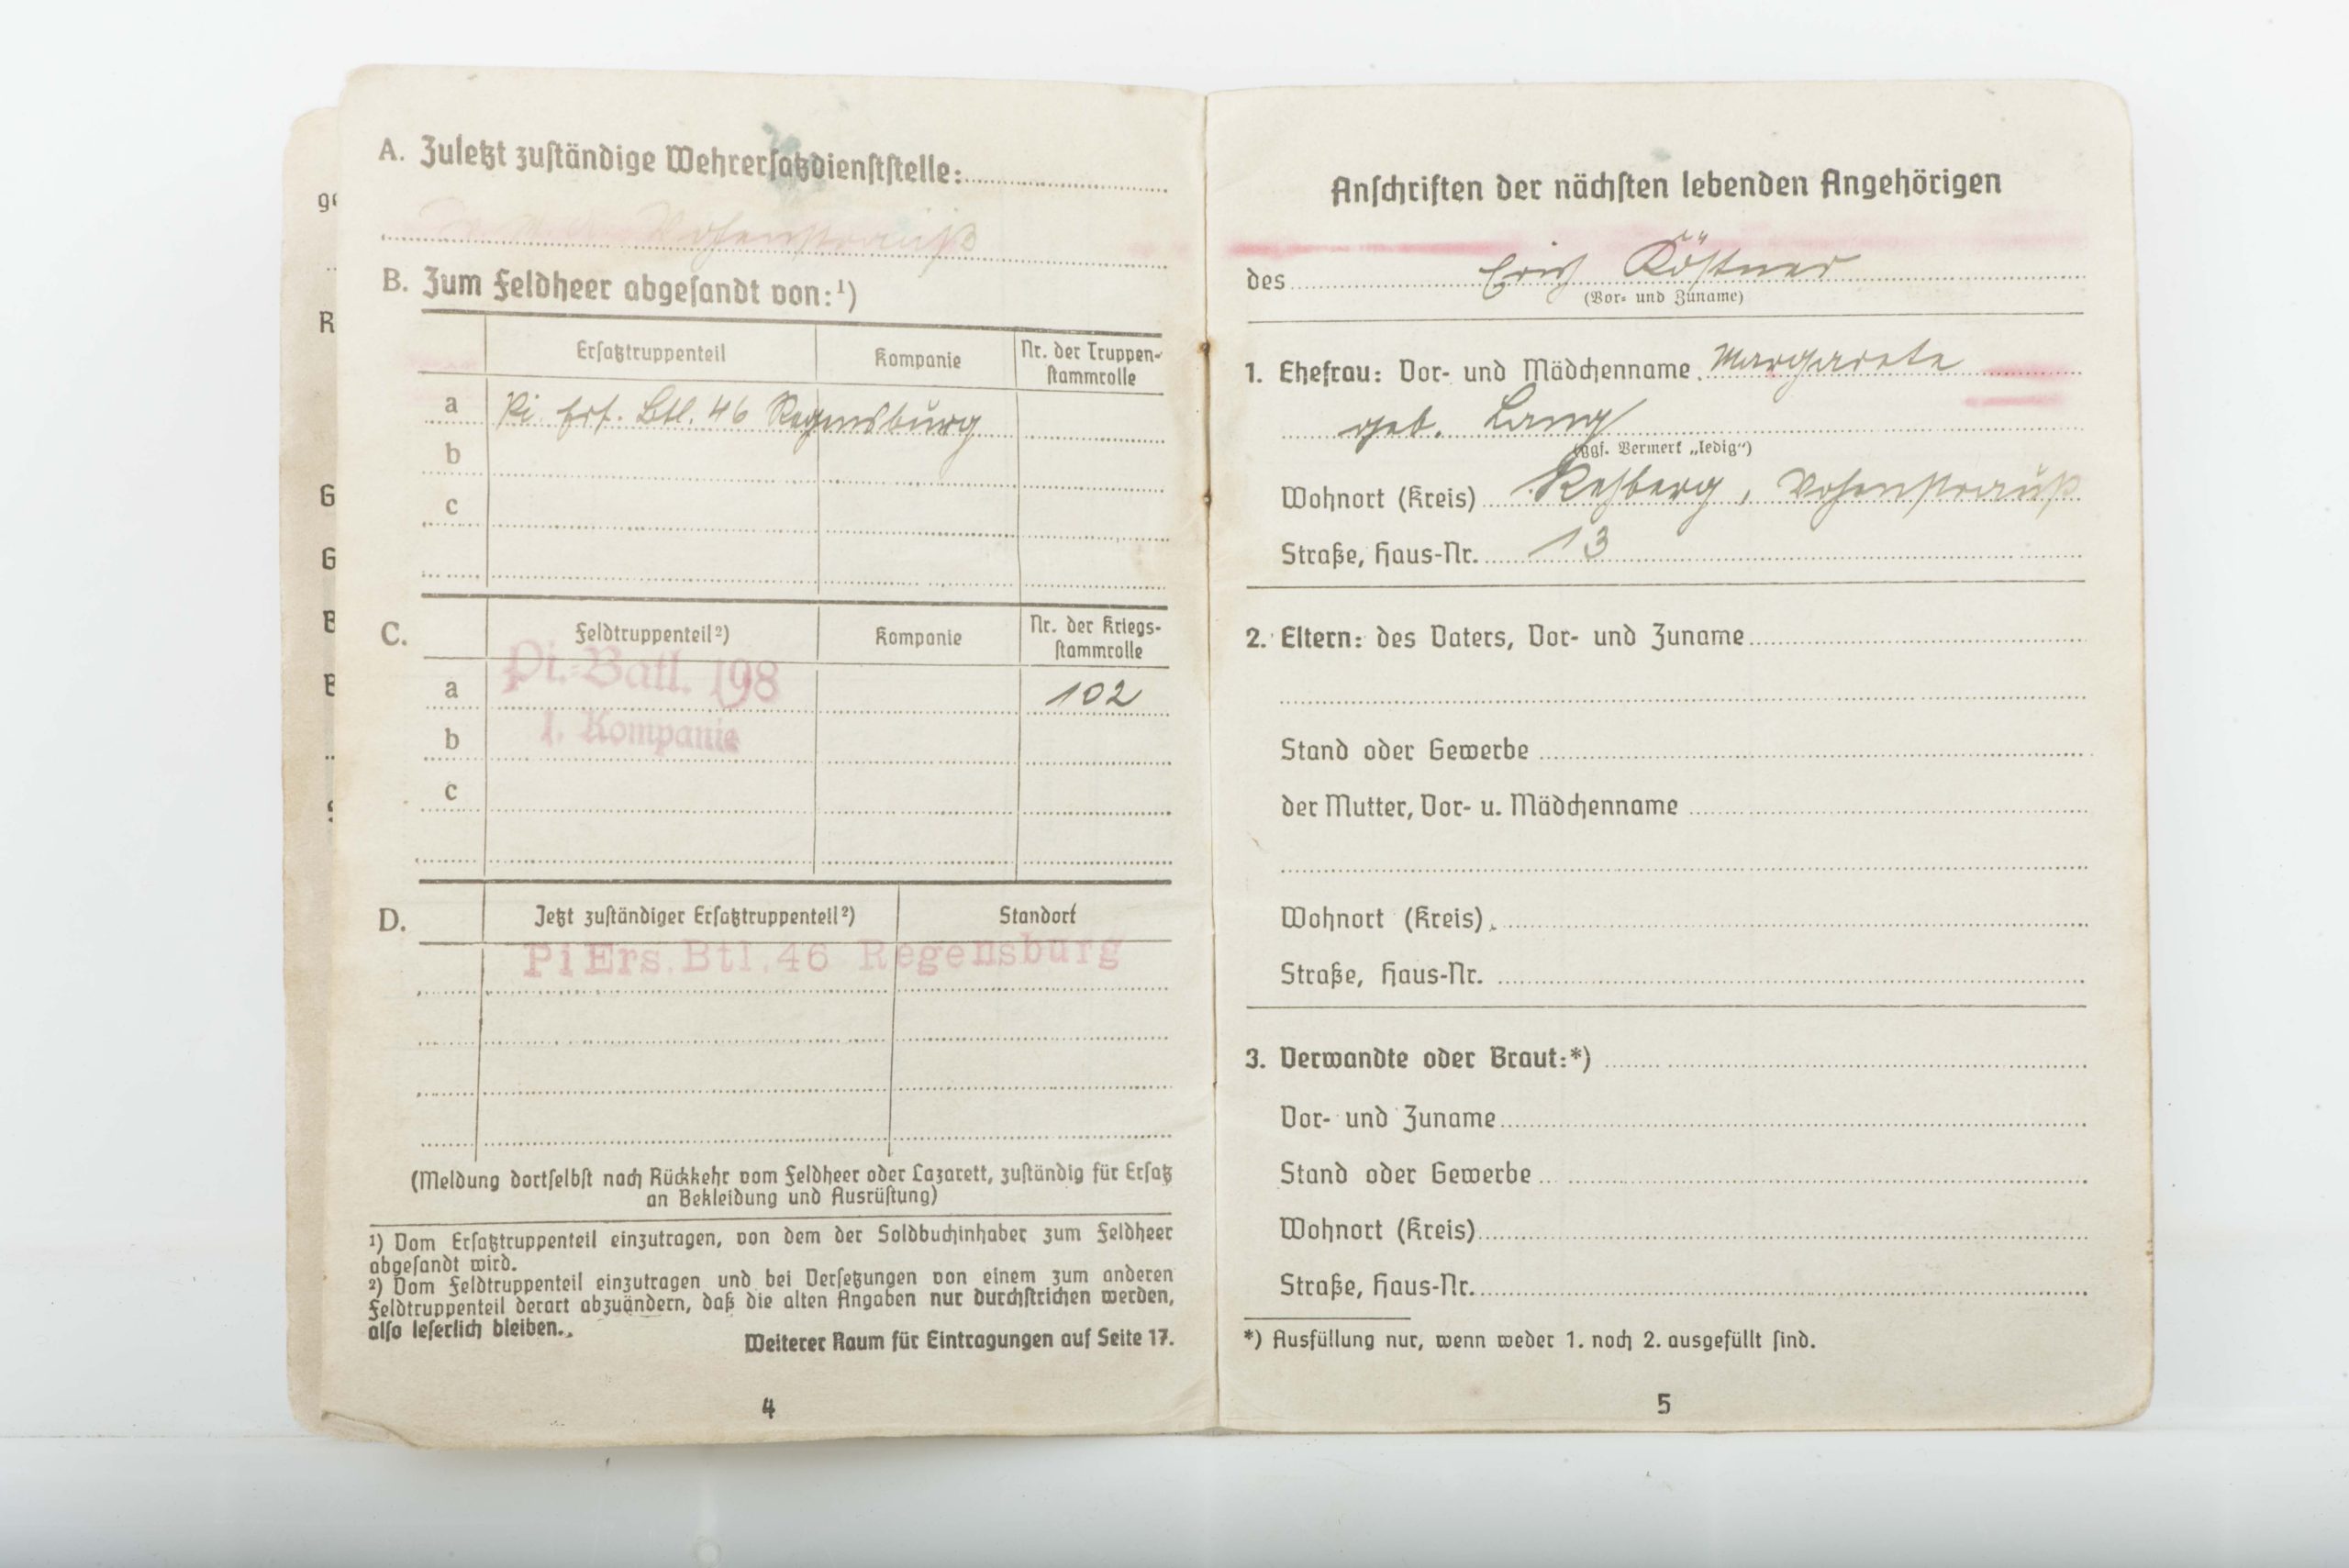 A. Zuletzt zuständige Wehrersatzdienststelle:
Vohenstrauß
B. Zum Feldheer abgesandt von:¹)
Ersatztruppenteil Kompanie Nr. der Truppen-
stammrolle
a Pi. Ers. Btl. 46 Regensburg
b
c
C. Feldtruppenteil²) Kompanie Nr. der Kriegs-
stammrolle
a Pi.-Batl. 198 102
b 1. Kompanie
c
D. Jetzt zuständiger Ersatztruppenteil²) Standort
Pi Ers. Btl. 46 Regensburg
(Meldung dortselbst nach Rückkehr vom Feldheer oder Lazarett, zuständig für Ersatz
an Bekleidung und Ausrüstung)
¹) Vom Ersatztruppenteil einzutragen, von dem der Soldbuchinhaber zum Feldheer
abgesandt wird.
²) Vom Feldtruppenteil einzutragen und bei Versetzungen von einem zum anderen
Feldtruppenteil derart abzuändern, daß die alten Angaben nur durchstrichen werden,
also leserlich bleiben.
Weiterer Raum für Eintragungen auf Seite 17.
4
Anschriften der nächsten lebenden Angehörigen
des Erich Köstner
(Vor- und Zuname)
1. Ehefrau: Vor- und Mädchenname Margarete
geb. Lang
(ggf. Vermerk „ledig“)
Wohnort (Kreis) , Vohenstrauß
Straße, Haus-Nr. 13
2. Eltern: des Vaters, Vor- und Zuname
Stand oder Gewerbe
der Mutter, Vor- u. Mädchenname
Wohnort (Kreis)
Straße, Haus-Nr.
3. Verwandte oder Braut:*)
Vor- und Zuname
Stand oder Gewerbe
Wohnort (Kreis)
Straße, Haus-Nr.
*) Ausfüllung nur, wenn weder 1. noch 2. ausgefüllt sind.
5